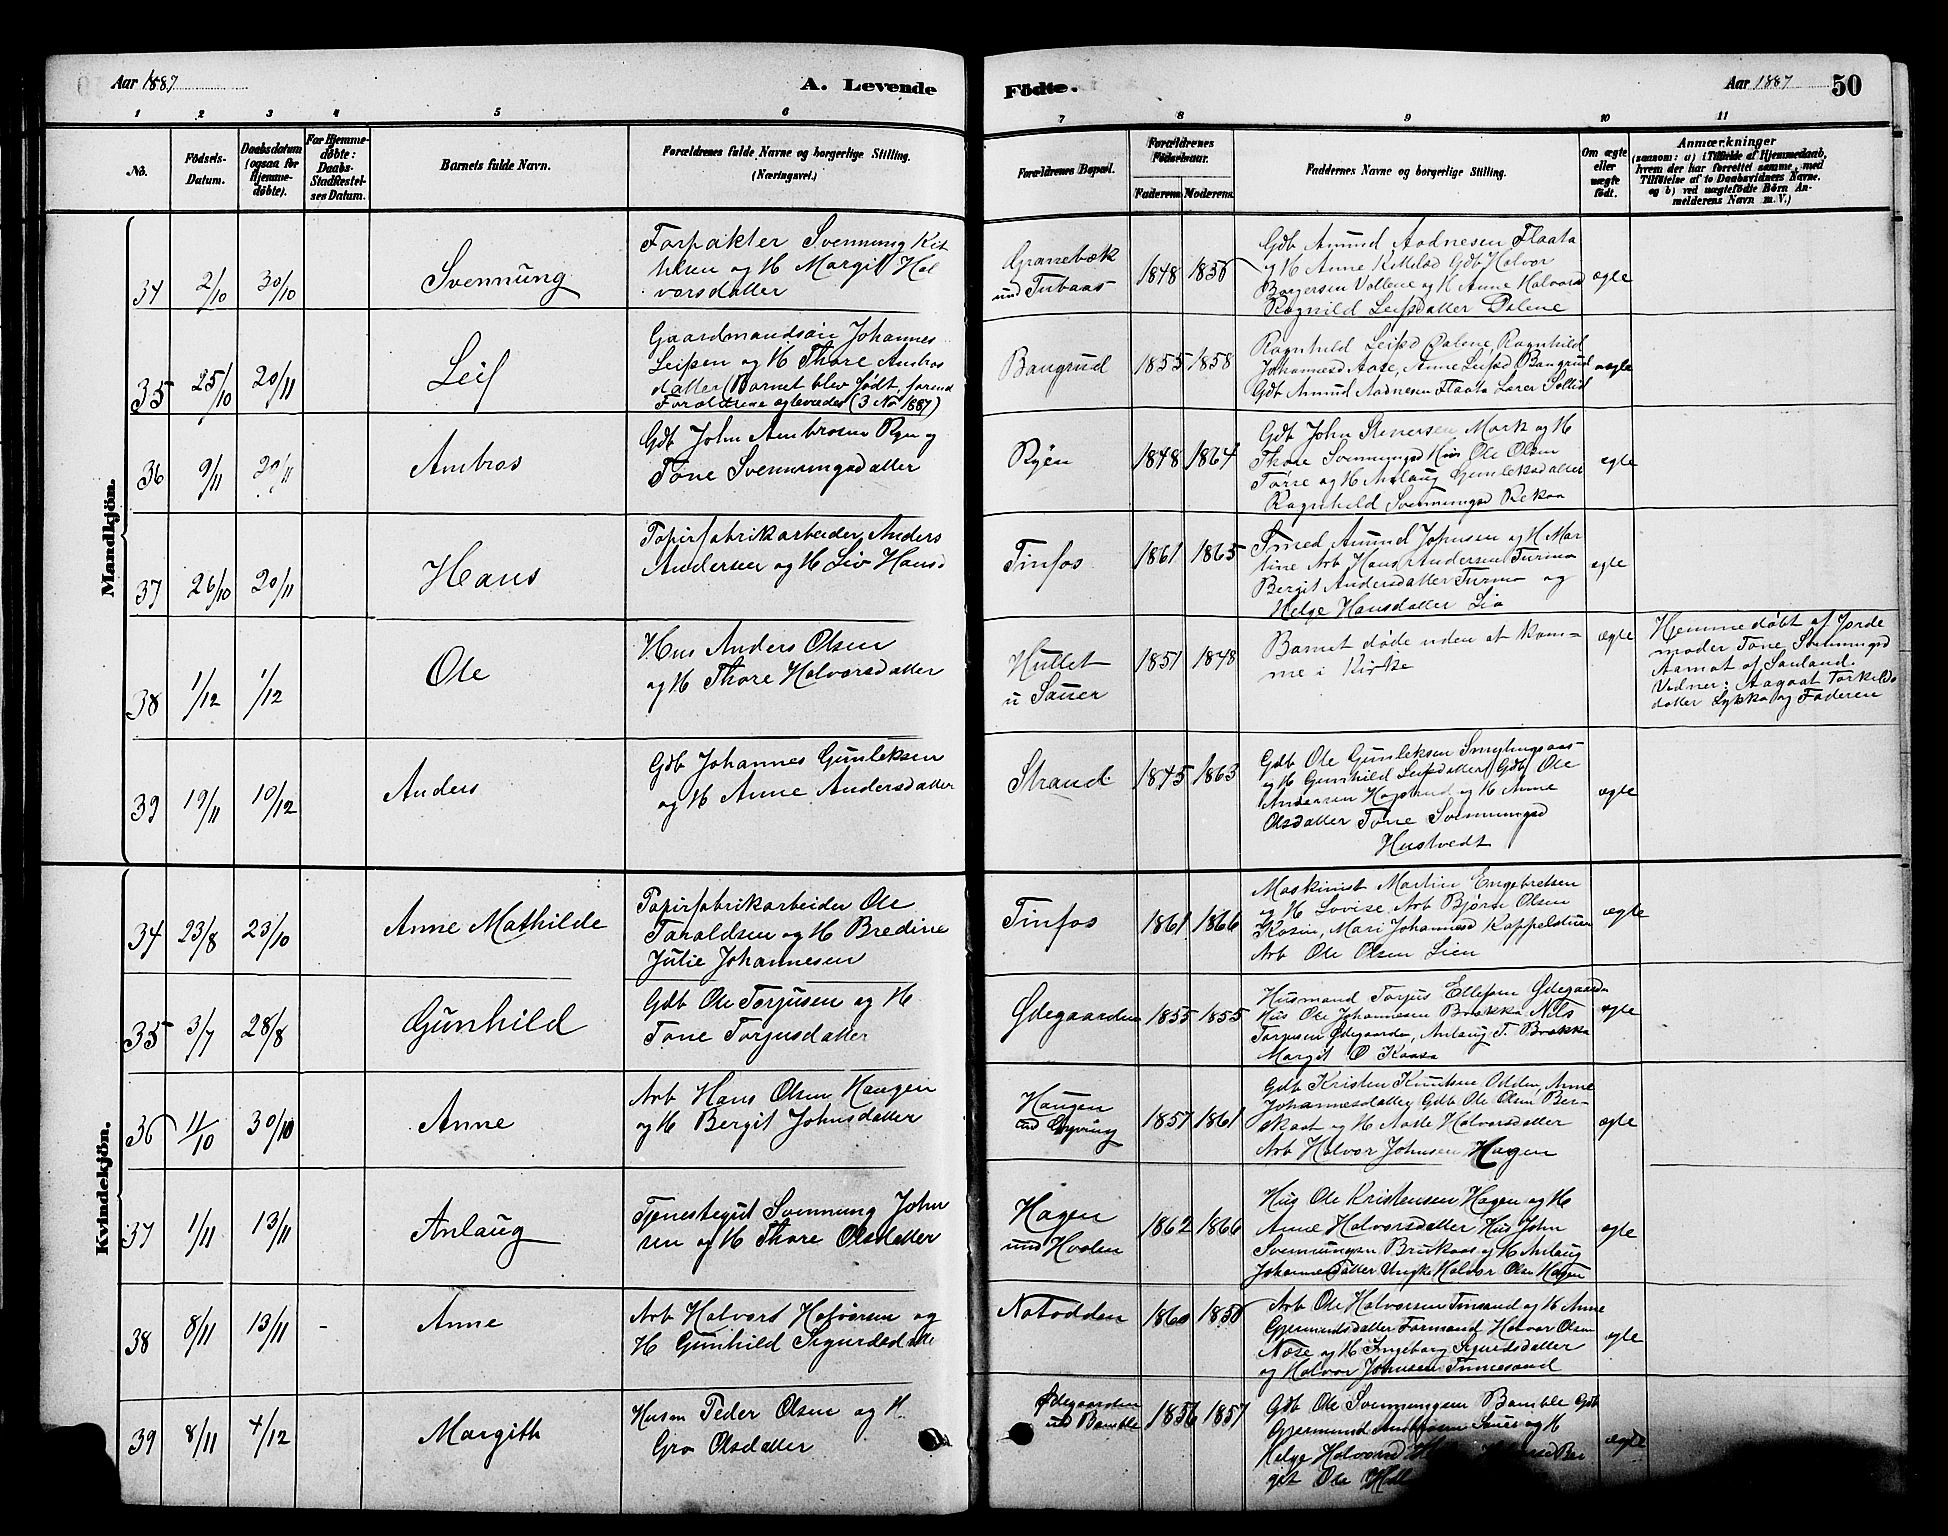 Aar 1887
A. Levende
Fødte.
Aar 1887
50
1 2 3 4 5 6 7 8 9 10 11
No.
Fødsels-
Datum.
Daabsdatum
(ogsaa for
Hjemme-
døbte).
For Hjemme-
døbte:
Daabs-
Stadfæstel-
ses Datum.
Barnets fulde Navn.
Forældrenes fulde Navne og borgerlige Stilling.
(Næringsvei.)
Forældrenes Bopæl.
Forældrenes
Fødselsaar.
Faderens
Moderens
Faddernes Navne og borgerlige Stilling.
Om ægte
eller
uægte
født.
Anmærkninger
(saasom: a) i Tilfælde af Hjemmedaab,
hvem der har forrettet samme, med
Tilføielse af to Daabsvidners Navne.
og b) ved uægtefødte Børn An-
melderens Navn m. V.)
Mandkjøn.
34 2/10 30/10 Svennung
Forpakter Svennung Kit
ilsen og H Margit Hal
vorsdatter
Granebæk
und
1848
Gdb Amund Aadnesen Flaata
og H Anne Gdb Halvor
Borgersen Vollene og H Anne Halvorsd
Ragnild Leifsdatter Dalene
ægte
35 25/10 20/11 Leif
Gaardmandsøn Johannes
Leifsen og H Thore Ambros
datter (Barnet blev født, forend
Forældrene egteviedes (3 No 1887)
Bangrud
1855 1858
Ragnhild Leifsd Dalene, Ragnhild
Johannesd Aase, Anne Leifsd Bangrud
Gdb Amund Aadnesen Flaata Lærer
36 9/11 20/11 Ambros
Gdb John Ambrosen Ryen og
Tone Svennungsdatter
Ryen
1848 1864
Gdb John Mork og H
Thore Svennungsd Hus Ole Olsen
og H Anlaug Gunleksdatter
Ragnhild Svennungsd Rekaa
egte
37 26/10 20/11 Hans
Papirfabrikarbeider Anders
Andersen og H Liv Hansd
Tinfos
1861 1865
Smed Amund Johnsen og H Mar
tine Arb Hans Andersen Turmo
Bergit Andersdatter Turmo og
Helge Hansdatter Lia
egte
38 1/12 1/12 Ole
Hus Anders Olsen
og H Thore Halvorsdatter
Hullet
u Sauer
1851 1848
Barnet døde uden at kom-
me i Kirke
ægte
Hjemmedøbt af Jorde
moder Tone Svennungsd
Aamot af Sauland.
Vidner: Aagaat Torkilds
datter Lykka og Faderen
39 19/11 10/12 Anders
Gdb Johannes Gunleksen
og H Anne Andersdatter
Strand
1845 1863
Gdb Ole Gunleksen
og H Gunhild Leifsdatter, Gdb Ole
Andersen og H Anne
Olsdatter Tone Svennungsd
Hustvedt
ægte
Kvindekjøn.
34 23/8 23/10 Anne Mathilde
Papirfabrikarbeider Ole
Taraldsen og H Bredine
Julie Johannesen
Tinfos
1861 1866
Maskinist Martin Engebretsen
og H Lovise, Arb Bjørn Olsen
Kasin, Mari Johannesd
Arb Ole Olsen Lien
ægte
35 3/7 28/8 Gunhild
Gdb Ole Torjusen og H
Tone Torjusdatter
Ødegaarden
1855 1855
Husmand Torjus Ellefsen Ødegaarden
Hus Ole Johannesen Brokka Nils
Torjusen Ødegaarden, Anlaug T. Brokka
Margit O Kaasa
egte
36 11/10 30/10 Anne
Arb Hans Olsen Haugen
og H Bergit Johnsdatter
Haugen
und
1857 1861
Gdb Kristen Knutsen Odden, Anne
Johannesdatter Gdb Ole Olsen Ber-
kaat og H Aaste Halvorsdatter
Arb Halvor Johnsen Hagen
ægte
37 1/11 13/11 Anlaug
Tjenestegut Svennung John
sen og H Thore Olsdatter
Hagen
und Hvalen
1862 1866
Hus Ole Kristensen Hagen og H
Anne Halvorsdatter Hus John
Svennungsen Brukaas og H Anlaug
Johannesdatter Ungk Halvor Olsen Hagen
egte
38 8/11 13/11 - Anne
Arb Halvort Halvorsen og
H Gunhild Sigurdsdatter
Notodden
1860
Arb Ole Halvorsen Tinsand og H Anne
Gjermundsdatter Formand Halvor Olsen
Næse og H Ingeborg Sigurdsdatter
og Halvor Johnsen Tinnesand
egte
39 8/11 4/12 Margith
Husm Peder Olsen og H
Gro Olsdatter
Ødegaarden
und Bamble
1856 1857
Gdb Ole Svennungsen Bamble Gdb
Gjermund Sauer og H
Helge Halvorsd
git Ole
ægte